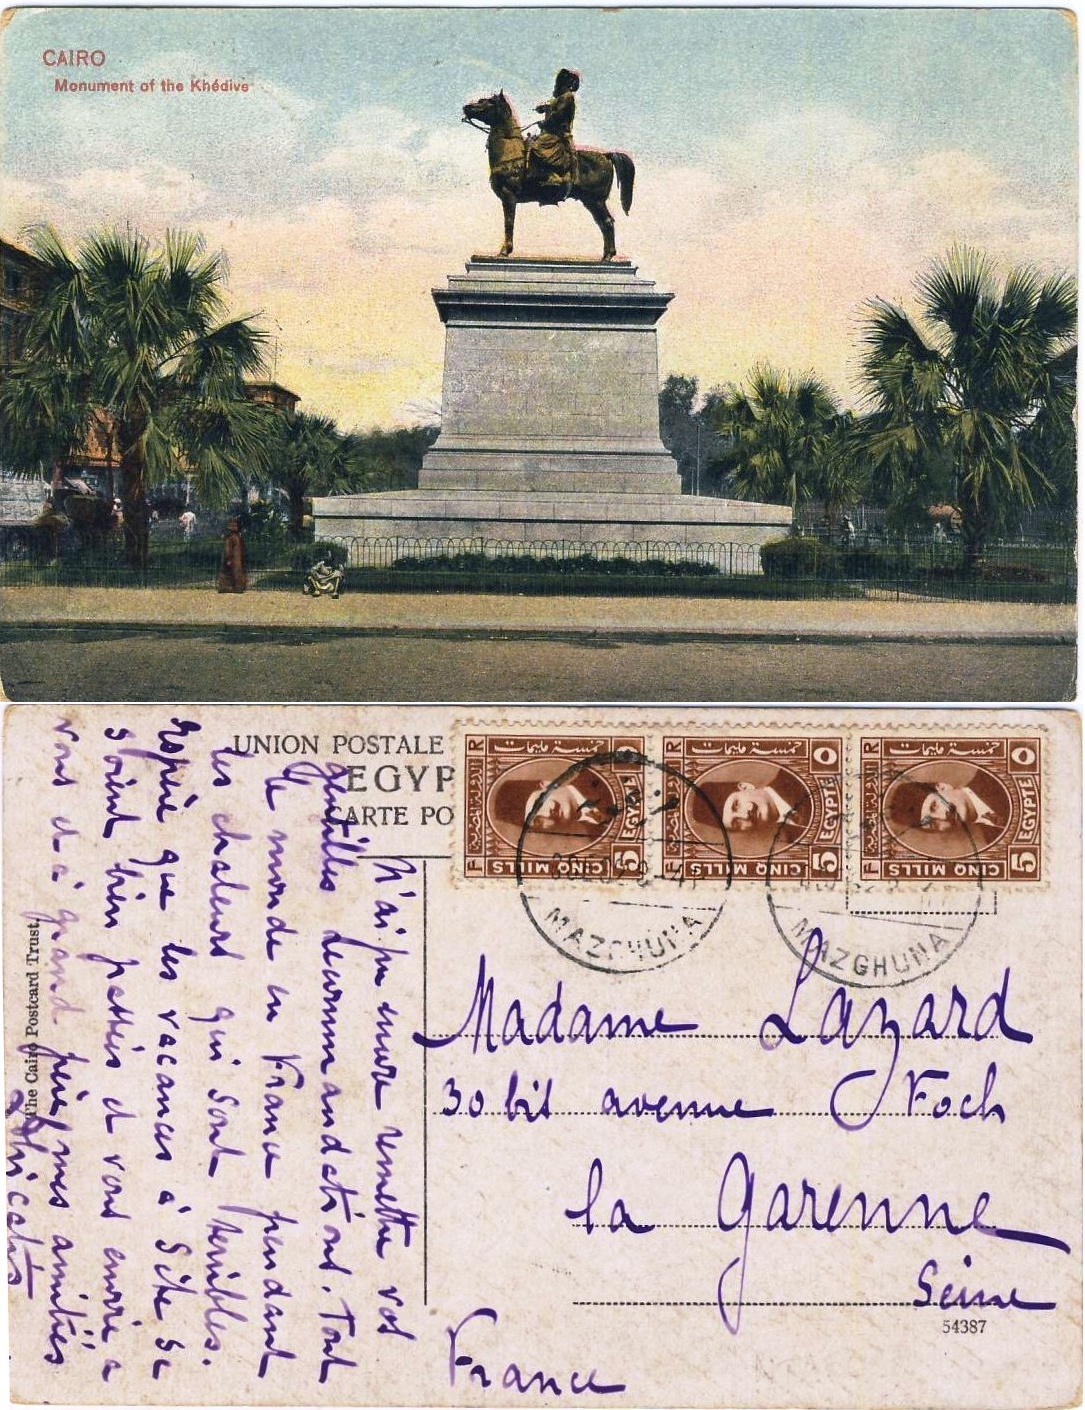 CAIRO
Monument of the Khédive
UNION POSTALE
EGYP
CARTE PO
F R
خمسة مليمات
٥
EGYPTE
5
CINQ MILLS
F R
خمسة مليمات
٥
EGYPTE
5
CINQ MILLS
F R
خمسة مليمات
٥
EGYPTE
5
CINQ MILLS
MAZGHUNA
MAZGHUNA
N'ai pu encore remettre vos
gentilles recommandations. Tout
le monde en France pendant
les chaleurs qui sont terribles.
Espère que les vacances à Sète se
soient bien passées et vous envoie à
vous et à grand père mes amitiés
The Cairo Postcard Trust,
Madame Lazard
30 bis avenue Foch
la Garenne
Seine
54387
France